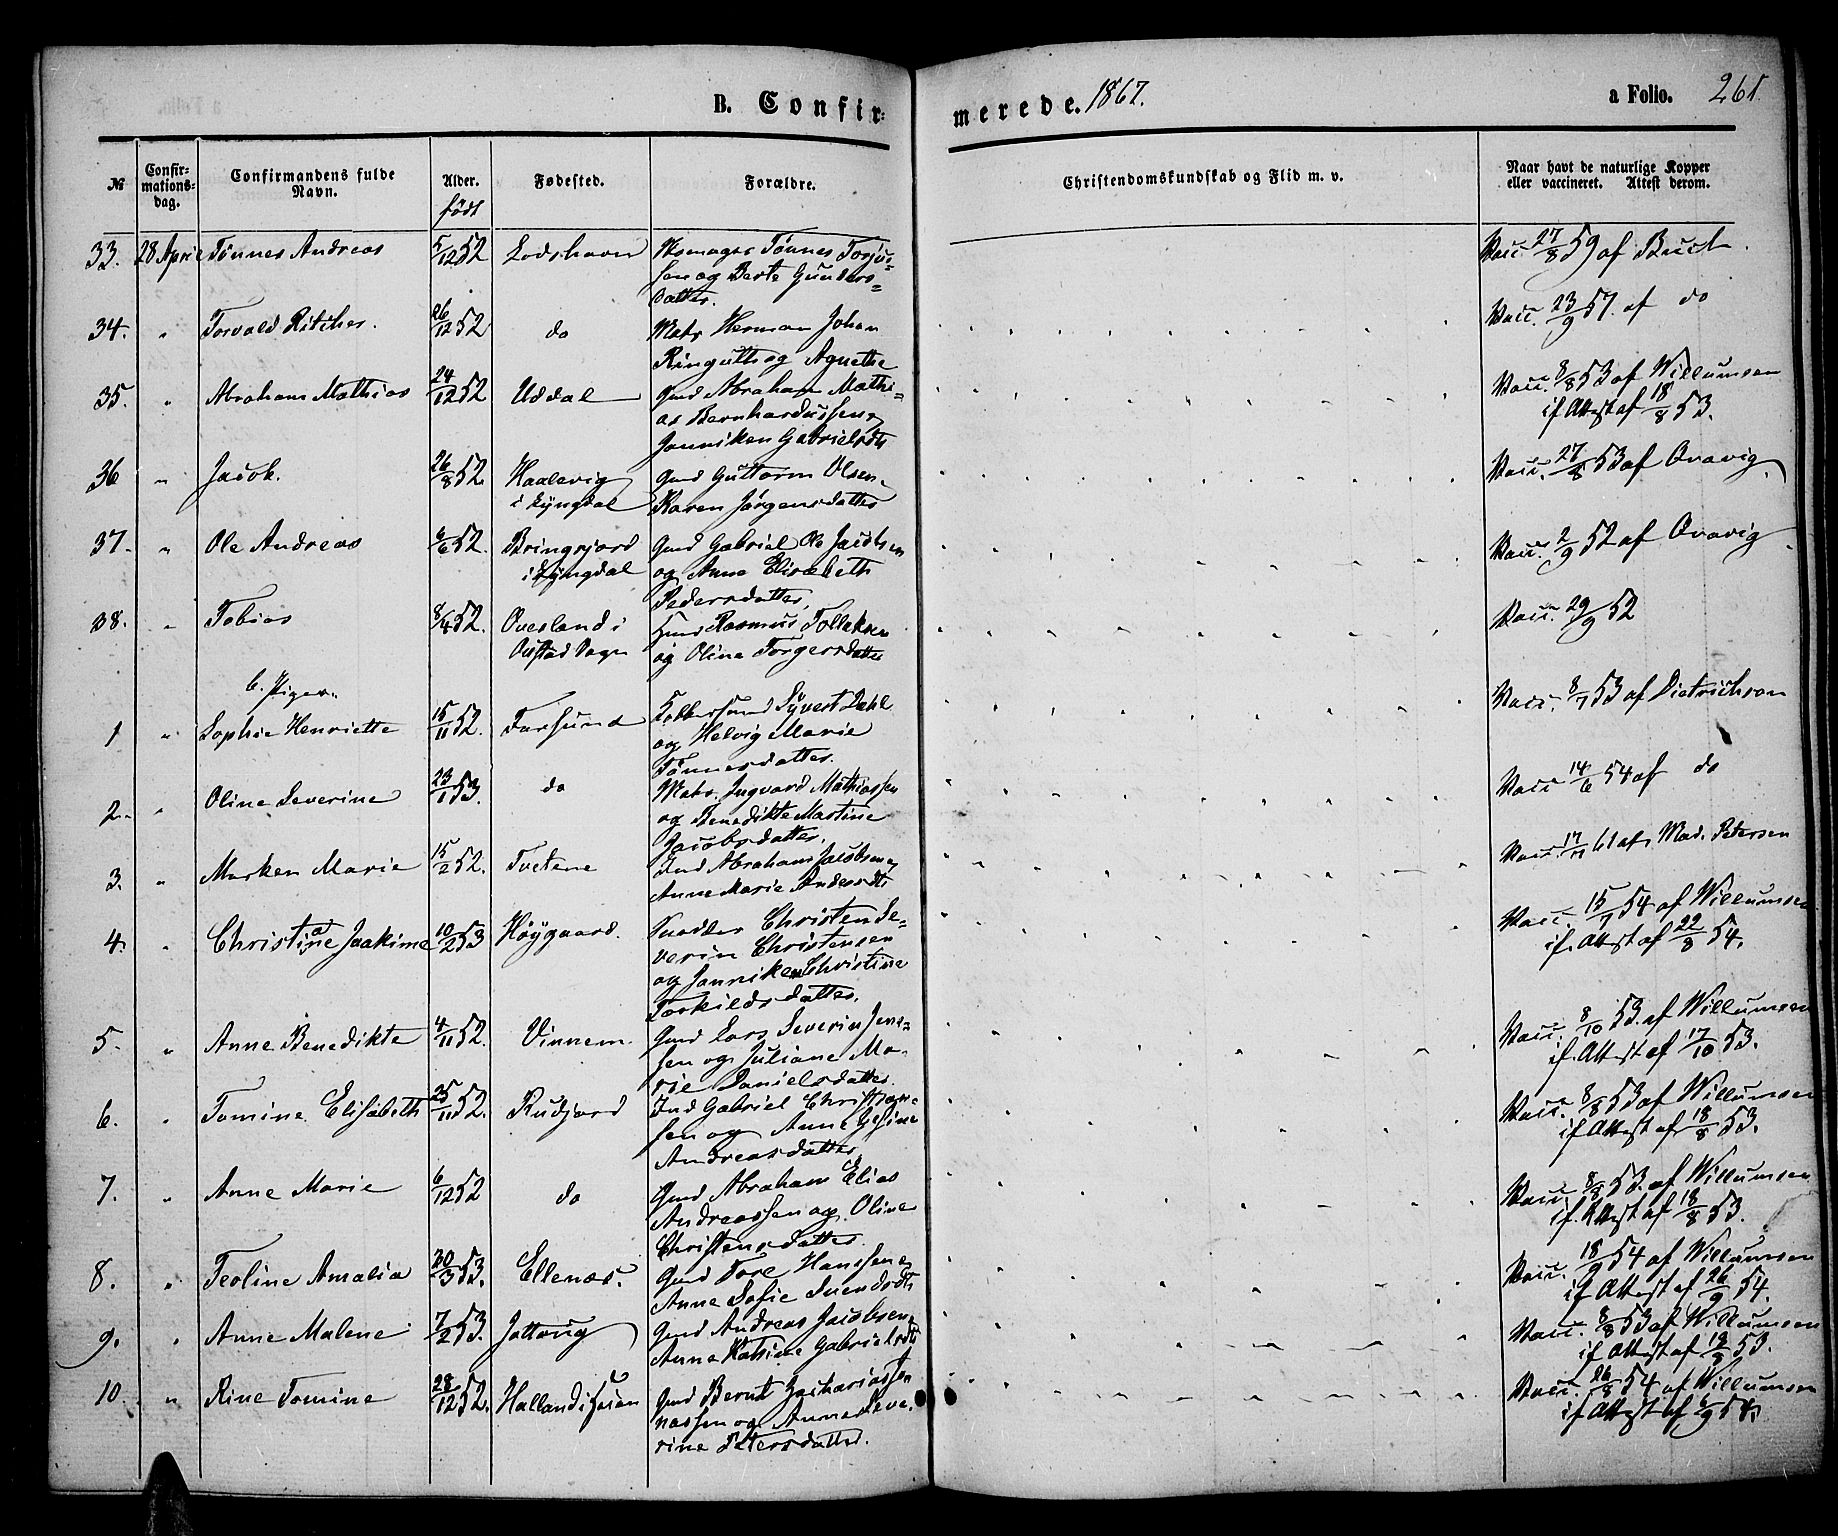 B. Confir=
merede. 1867.
a Folio. 261
№
Confir-
mations-
dag.
Confirmandens fulde
Navn.
Alder.
født
Fødested.
Forældre.
Christendomskundskab og Flid m. v.
Naar havt de naturlige Kopper
eller vaccineret. Attest derom.
33. 28 April Tønnes Andreas 5/12 52 Lodshavn Tønnes Torjus=
sen og Berte Gunders=
datter.
Vacc. 27/8 59 af Buch
34. " Torvald Ritcher. 26/12 52 do Matr Herman Johan
Ringulth og Agnethe
Vacc. 23/9 57. af do
35. " Abraham Mathias 24/12 52 Uddal Gmd Abraham Mathi=
as Bernhardussen,
Janniken Gabrielsdtr
Vacc. 8/8 53 af Willumsen
if Attest af 18/8 53.
36 " Jacob. 26/8 52. Haalevig
i Lyngdal
Gmd Guttorm Olsen,
Karen Jørgensdatter
Vacc. 27/8 53 af Qvavig
37. " Ole Andreas 6/6 52. Bringsjord
i Lyngdal
Gmd Gabriel Ole Jacobsen
og Anne Elisabeth
Pedersdatter,
Vacc. 2/9 52 af Qvavig
38. " Tobias 8/4 52. Ovesland i
Sogn
Rasmus Tollaksen
og Oline Torgersdatter
Vacc. 29/9 52
b. Piger.
1 " Sophie Henriette 15/11 52. Farsund Sÿvert Dahl
og Helvig Marie
Tønnesdatter.
Vacc. 8/7 53 af Dietrichson
2. " Oline Severine 23/1 53. do Matr. Ingvard Mathiassen
og Benedikte Martine
Jacobsdatter.
Vacc 14/6 54 af do
3. " Marken Marie 15/2 52. Tvetene Ind Abraham Jacobsen,
Anne Marie Andersdtr
Vacc. 61 af Mad. Petersen
4. " Christine Jaakime 10/2 53 Høygaard. Christen Se=
verin Christensen
og Janniken Christine
Torkildsdatter.
Vacc. 15/7 54 af Willumsen
if. Attest af 22/8 54.
5. " Anne Benedikte 4/11 52. Vinnem. Gmd Lars Severin Jens=
sen og Juliane Ma=
rie Danielsdatter.
Vacc. 8/10 53. af Willumsen
if. Attest af 17/10 53.
6. " Tomine Elisabeth 25/11 52. Rudjord Ind Gabriel Christian=
sen og Anne Gesine
Andreasdatter,
Vacc. 8/8 53 af Willumsen
if Attest af 18/8 53.
7. " Anne Marie 6/12 52 do Gmd Abraham Elias
Andreassen og Oline
Christensdatter.
Vacc. 8/8 53. af Willumsen
if. Attest af 18/8 53.
8. " Teoline Amalia 30/3 53. Ellenæs. Gmd Tore Hanssen,
Anne Sofie Svendsdtr
Vacc. 18/9 54 af Willumsen
if Attest af 26/9 54.
9. " Anne Malene 7/2 53. Jøllevig Gmd Andreas Jacobsen,
Anne Katrine Gabrielsdtr
Vacc. 8/8 53 af Willumsen
if Attest af 18/8 53.
10. " Rine Tomine 28/12 52. Halland i Gmd Bernt Zachariassen
og Anne Seve=
rine Petersdatter.
Vacc. 26/8 54 af Willumsen
if Attest af 6/9 54.